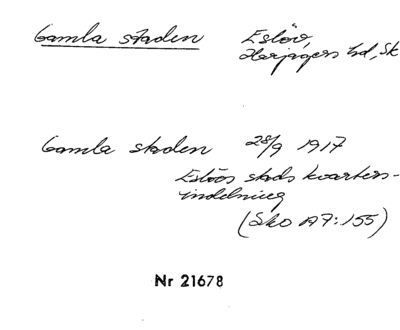 Gamla staden Eslöv,
Harjagers hd, Sk
Gamla staden 28/9 1917
Eslövs stads kvarters-
indelning
(Sko A7:155)
Nr 21678